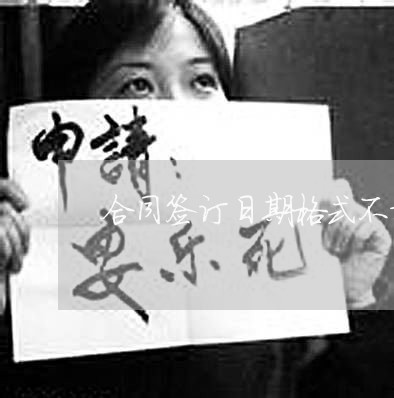 申請：
合同签订日期格式不
安乐死